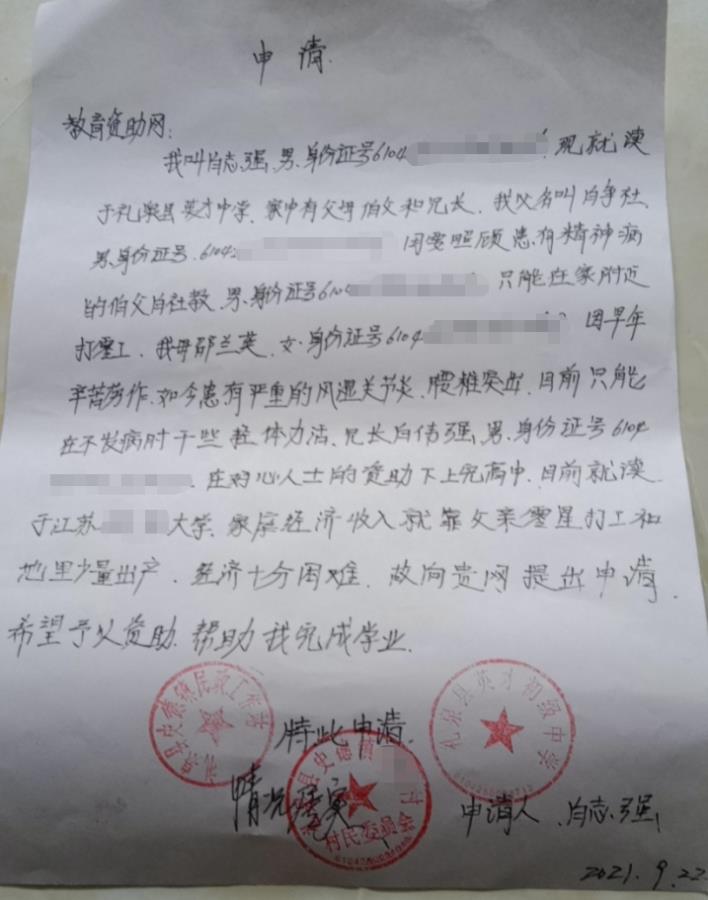 申请
教育资助网:
我叫白志强,男,身份证号6104 现就读
于礼泉县英才中学,家中有父母伯父和兄长,我父名叫白争社,
男,身份证号.6104 因需照顾患有精神病
的伯父白社教,男,身份证号6104 只能在家附近
打零工,我母邵兰英,女,身份证号6104 因早年
辛苦劳作,如今患有严重的风湿关节炎,腰椎突出,目前只能
在不发病时干些轻体力活,兄长白伟强,男,身份证号6104
.在好心人士的资助下上完高中,目前就读
于江苏 大学,家庭经济收入就靠父亲零星打工和
地里少量出产,经济十分困难,故向贵网提出申请,
希望予以资助,帮助我完成学业.
特此申请.
情况属实
申请人.白志强
2021.9.22
礼泉县史德镇民政工作站
礼泉县英才初级中学
县史德 村
村民委员会